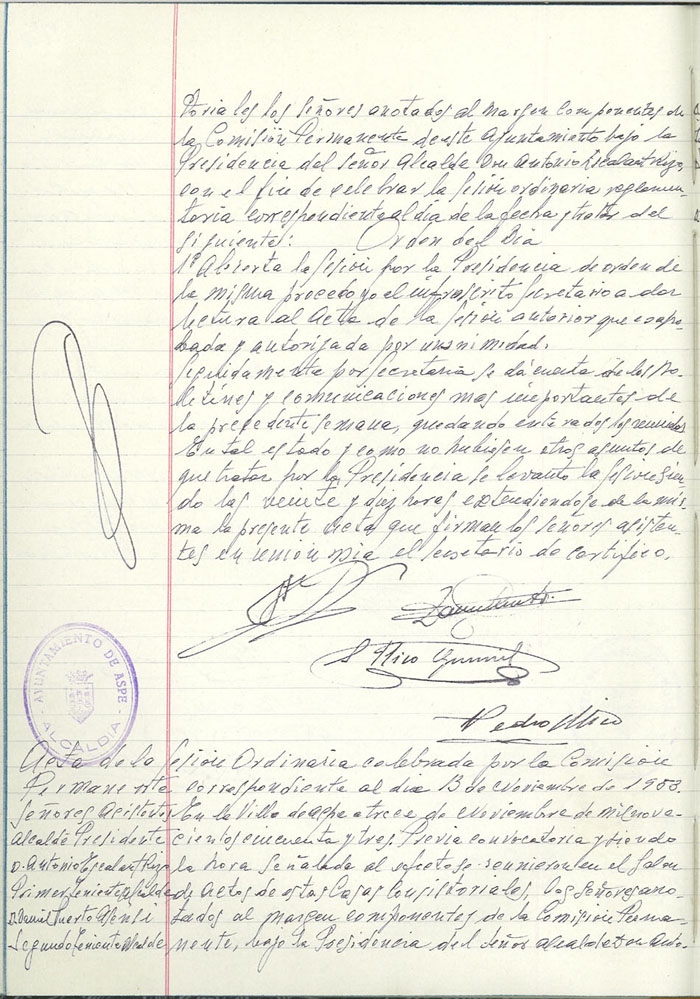 toriales los señores anotados al margen componentes de
la Comisión Permanente de este Ayuntamiento bajo la
Presidencia del Señor Alcalde Don Antonio Escalant
con el fin de celebrar la sesión ordinaria reglamen-
taria correspondiente al día de la fecha y tratar del
siguiente: Orden del Día
1º Abierta la sesión por la Presidencia de orden de
la misma procedo yo el infrascrito Secretario a dar
lectura al Acta de la sesión anterior que es apro-
bada y autorizada por unanimidad.
Seguidamente por Secretaria se dá cuenta de los Bo-
letines y comunicaciones mas importantes de
la precedente semana, quedando enterados los reunidos
En tal estado y como no hubiesen otros asuntos de
que tratar por la Presidencia se levanto la sesion sien-
do las veinte y diez horas extendiendose de la mis-
ma la presente acta que firman los señores asisten-
tes en unión mia el secretario do certifico.
S Rico
Pedro Mico
AYUNTAMIENTO DE ASPE
ALCALDIA
Acta de la Sesion Ordinaria celebrada por la Comisión
Permanente correspondiente al dia 13 de Noviembre de 1953.
Señores Asistentes
Alcalde Presidente
D. Antonio Escalant
Primer Teniente Alcalde
D. Daniel Puerto
Segundo Teniente Alcalde
En la Villa de Aspe a trece de Noviembre de mil nove-
cientos cincuenta y tres. Previa convocatoria y siendo
la hora señalada al efecto se reunieron en el Salon
de Actos de estas Casas Consistoriales, los señores ano-
tados al margen componentes de la Comisión Perma-
nente, bajo la Presidencia del Señor Alcalde Don Anto-